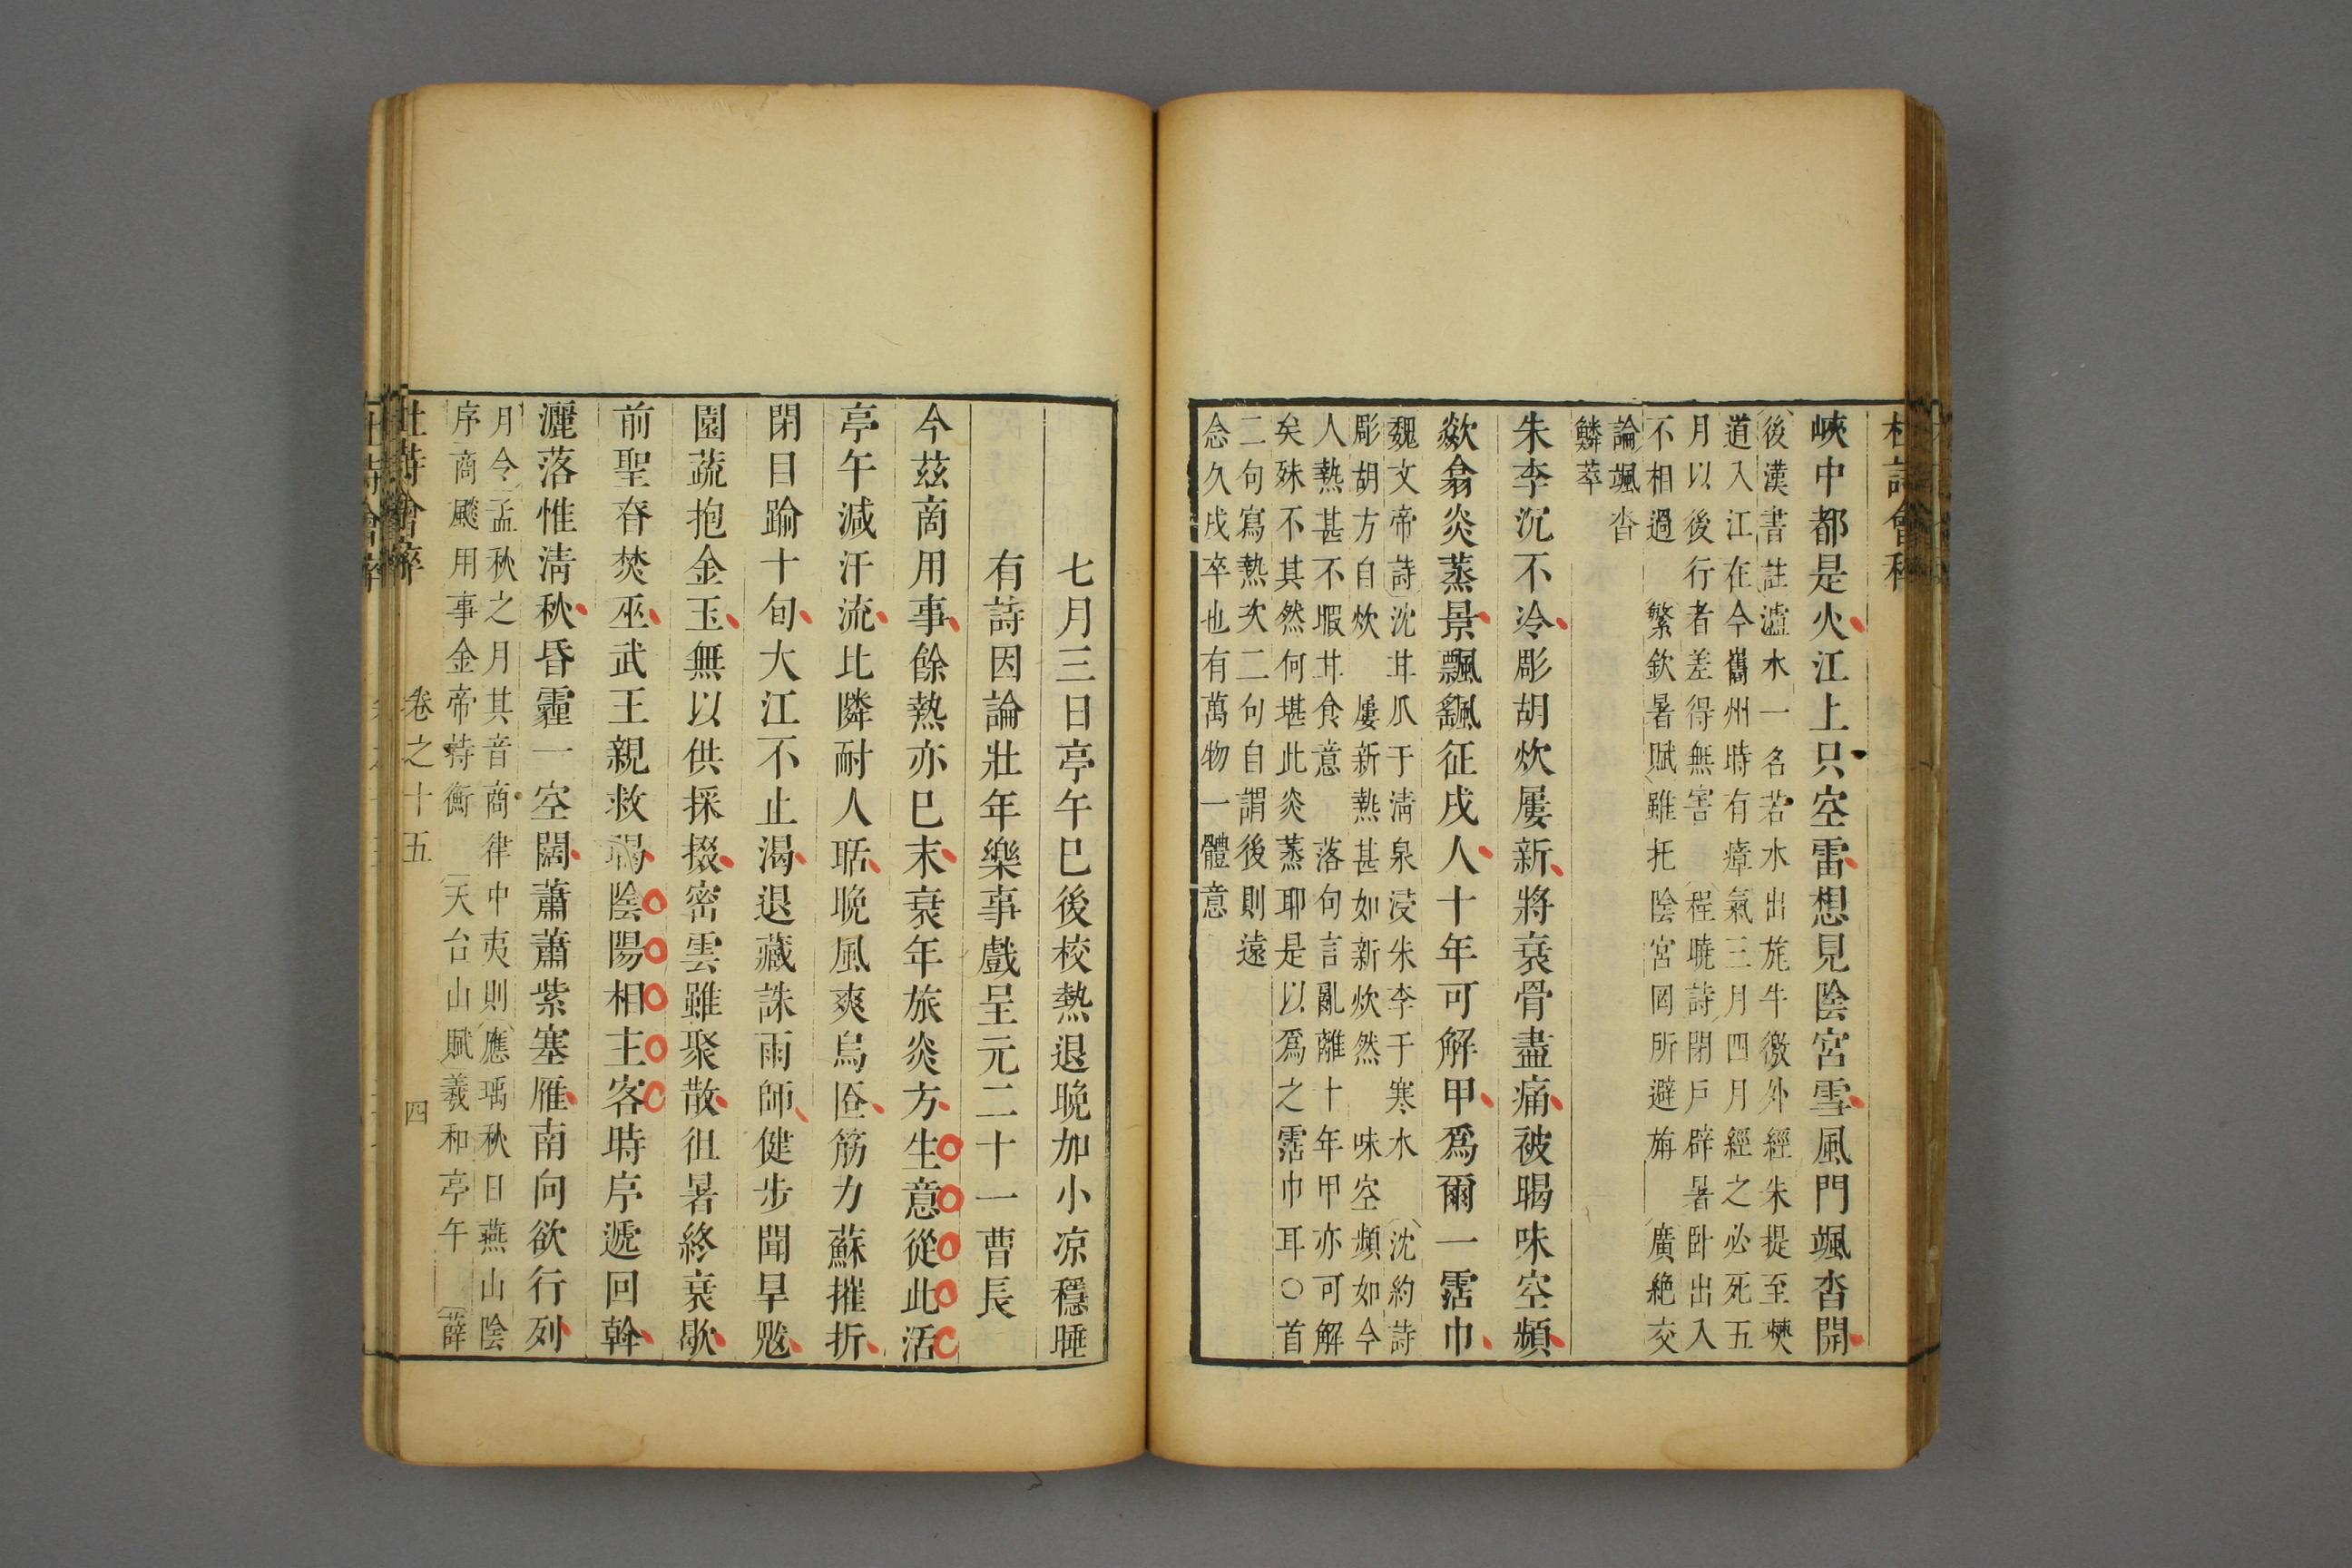 杜詩會稡
峽中都是火江上只空雷想見陰宮雪風門颯沓開
後漢書註瀘水一名若水出旄牛徼外經朱提至僰
道入江在今巂州時有瘴氣三月四月經之必死五
月以後行者差得無害 程曉詩閉戶辟暑臥出入
不相過 繁欽暑賦雖托陰宮罔所避旃 廣絶交
論颯沓
鱗萃
朱李沉不冷彫胡炊屢新將衰骨盡痛被暍味空頻
歘翕炎蒸景飄颻征戍人十年可解甲爲爾一霑巾
魏文帝詩沈甘瓜于淸泉浸朱李于寒水 沈約詩
彫胡方自炊 屢新熱甚如新炊然 味空頻如今
人熱甚不暇甘食意 落句言亂離十年甲亦可解
矣殊不其然何堪此炎蒸耶是以爲之霑巾耳○首
二句寫熱次二句自謂後則遠
念久戍卒也有萬物一體意
七月三日亭午巳後校熱退晚加小凉穩睡
有詩因論壯年樂事戲呈元二十一曹長
今茲啇用事餘熱亦巳末衰年旅炎方生意從此活
亭午減汗流比隣耐人聒晚風爽烏匼筋力蘇摧折
閉目踰十旬大江不止渴退藏誅雨師健步聞旱魃
園蔬抱金玉無以供採掇密雲雖聚散徂暑終衰歇
前聖眘焚巫武王親救暍陰陽相主客時序遞回斡
灑落惟淸秋昏霾一空闊蕭蕭紫塞雁南向欲行列
月令孟秋之月其音商律中夷則 應瑒秋日燕山陰
序商飈用事金帝持衡 天台山賦羲和亭午 薛
杜詩會稡 卷之十五 四